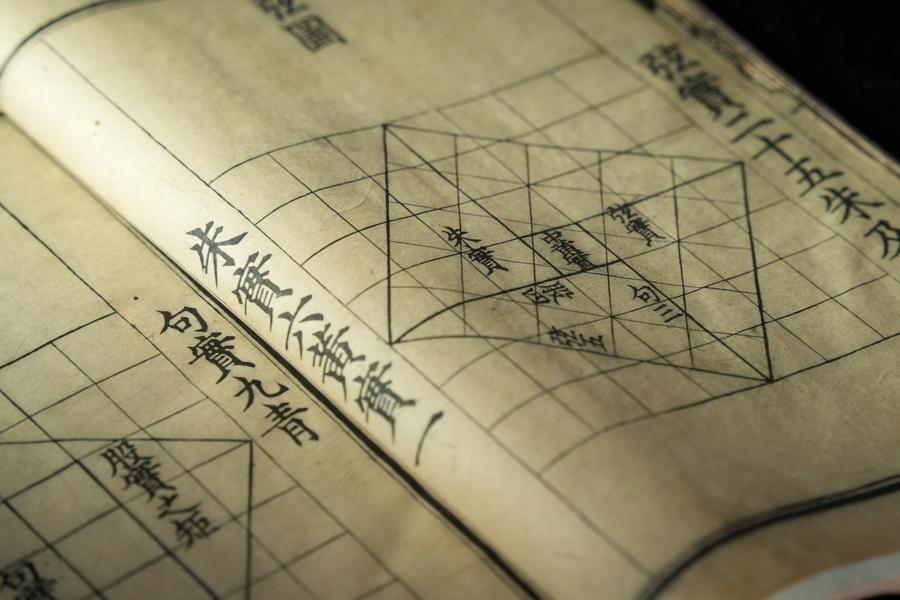 弦圖
弦實二十五朱及
弦實
中黃實
朱實
句三
股四
弦五
朱實六黃實一
句實九青
股實之矩